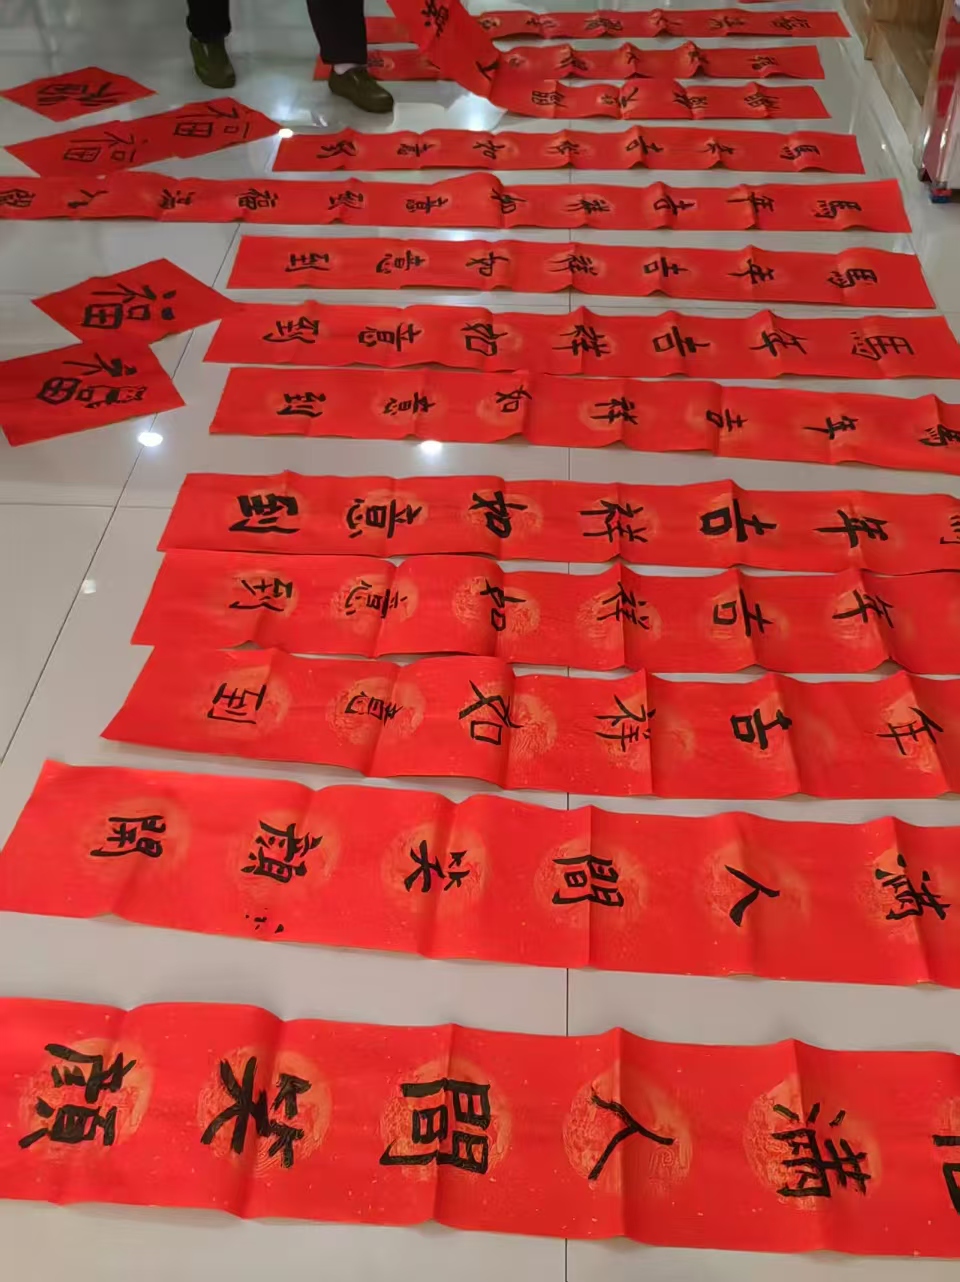 福
福
福
馬年吉祥如意到
馬年吉祥如意到福滿人間
馬年吉祥如意到
福
馬年吉祥如意到
福
馬年吉祥如意到
年吉祥如意到
年吉祥如意到
年吉祥如意到
滿人間笑顏開
滿人間笑顏